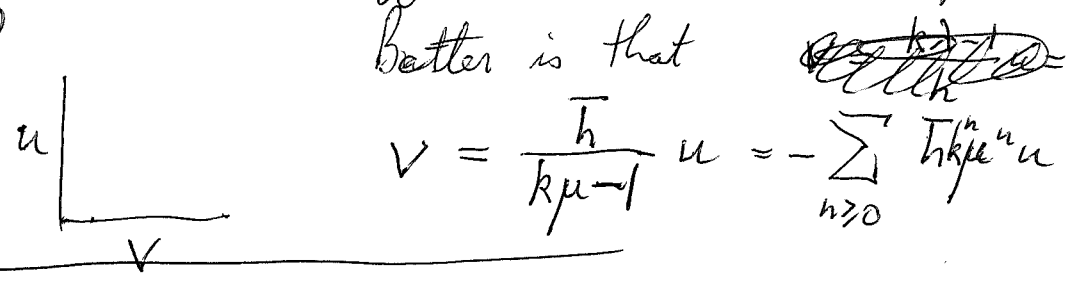 Better is that
u
v = \frac{\bar{h}}{k\mu-1} u = -\sum_{n \geq 0} \bar{h} k^n \mu^n u
v